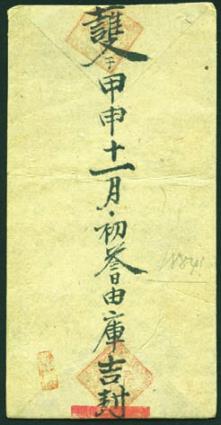 護
甲申十一月初叁日由庫吉封
1884